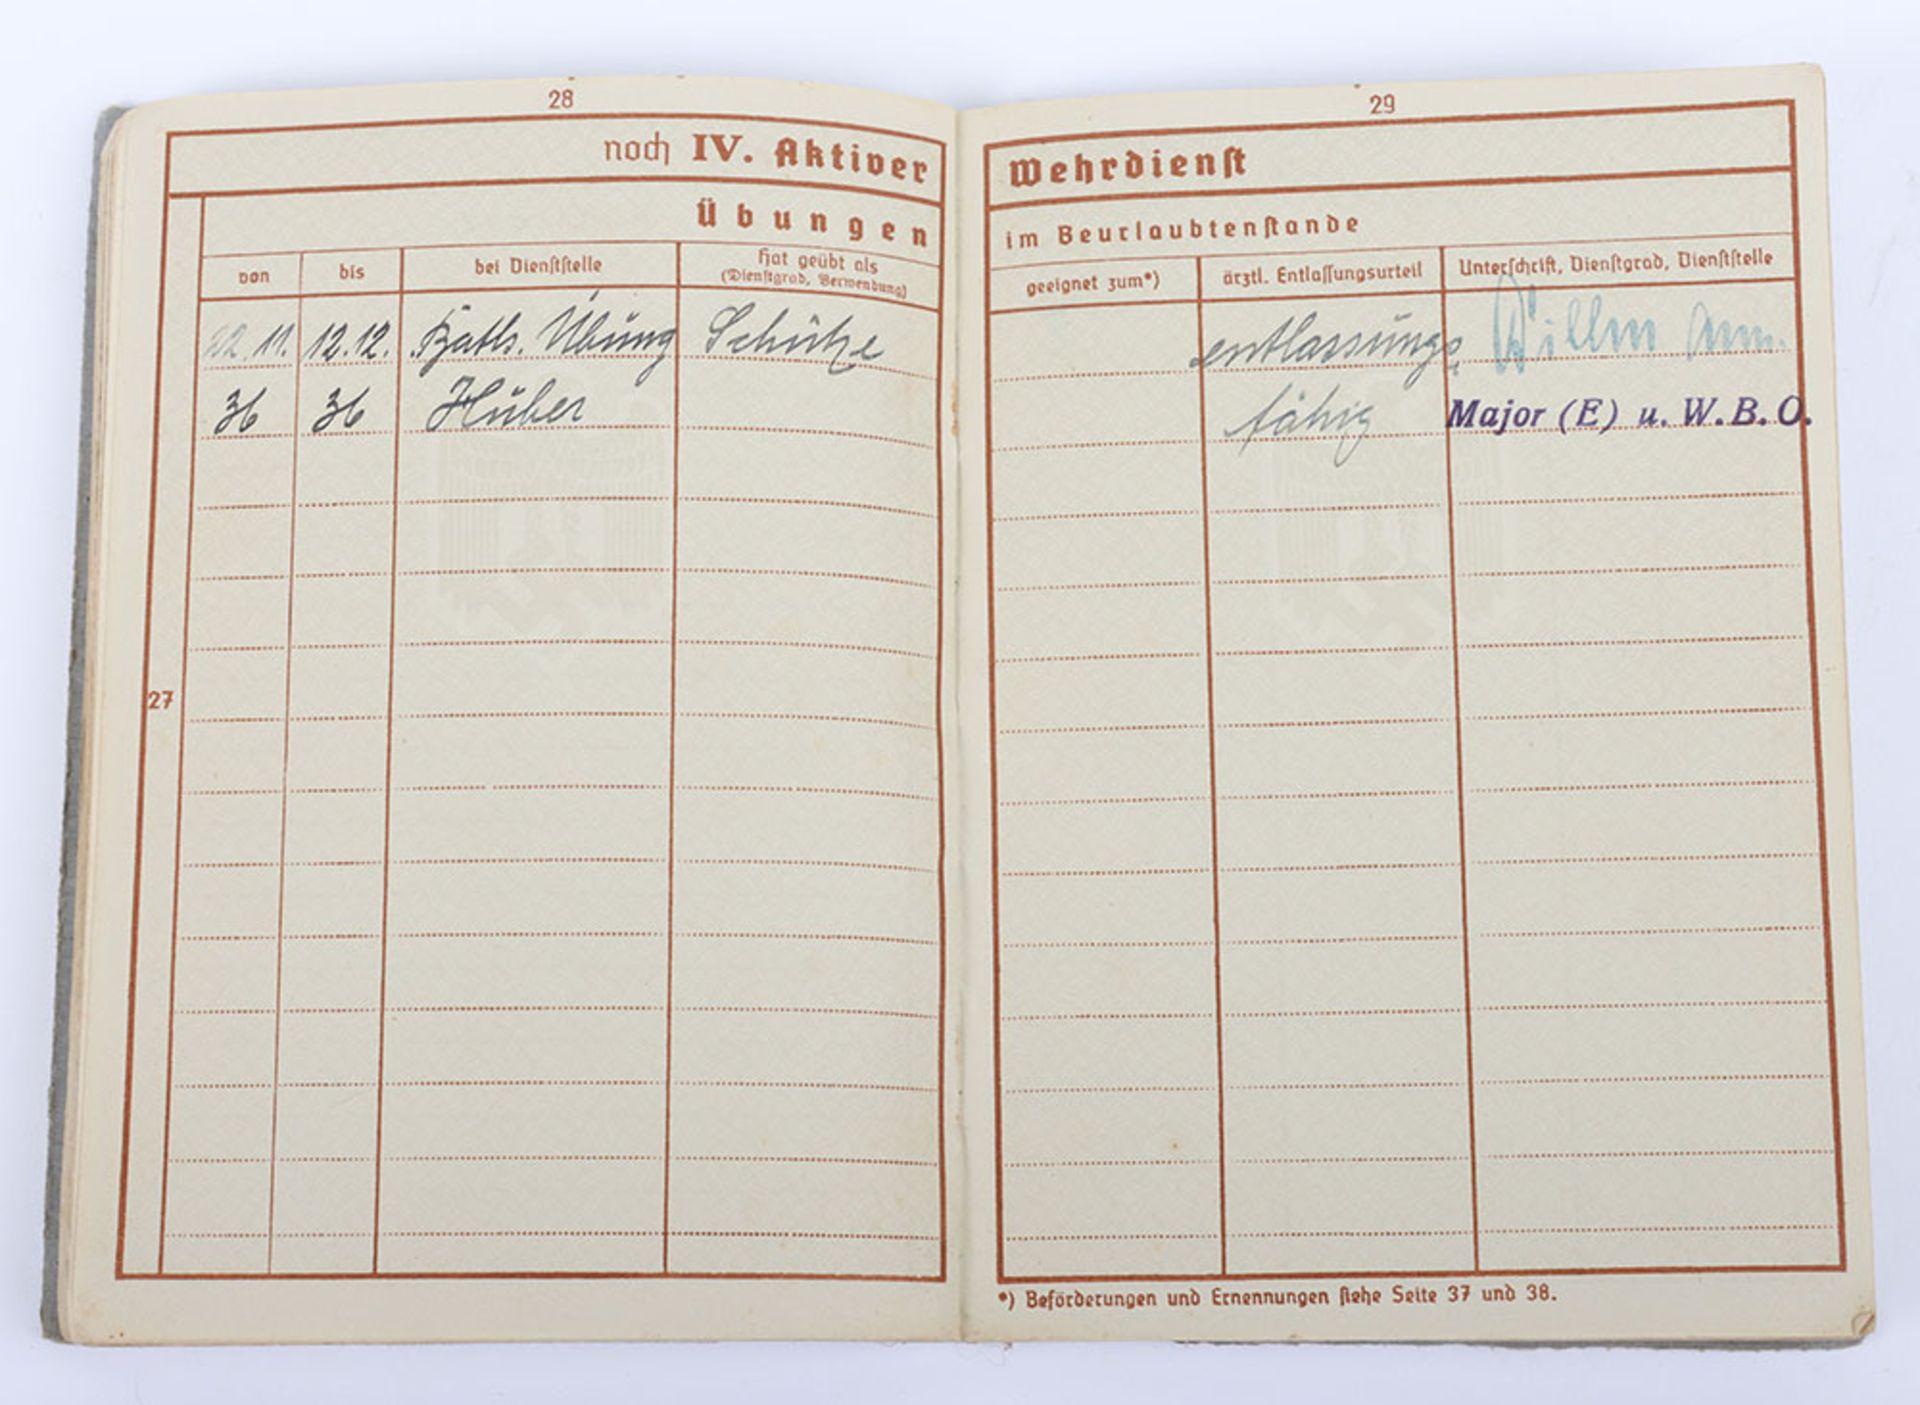 28
noch IV. Aktiver
Übungen
von bis bei Dienststelle Hat geübt als
(Dienstgrad, Verwendung)
22.11. 12.12. Batls. Übung Schütze
36 36 Huber
27
29
Wehrdienst
im Beurlaubtenstande
geeignet zum*) ärztl. Entlassungsurteil Unterschrift, Dienstgrad, Dienststelle
entlassungs
fähig Major (E) u. W.B.O.
*) Beförderungen und Ernennungen siehe Seite 37 und 38.